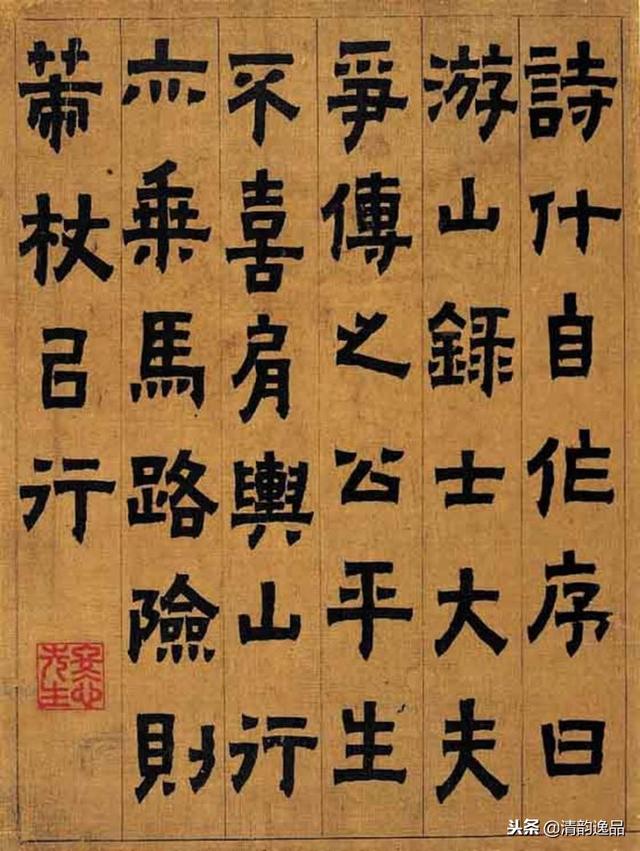 詩什自作序曰
游山錄士大夫
爭傳之公平生
不喜肩輿山行
亦乘馬路險則
策杖㠯行
冬心先生
头条 @清韵逸品